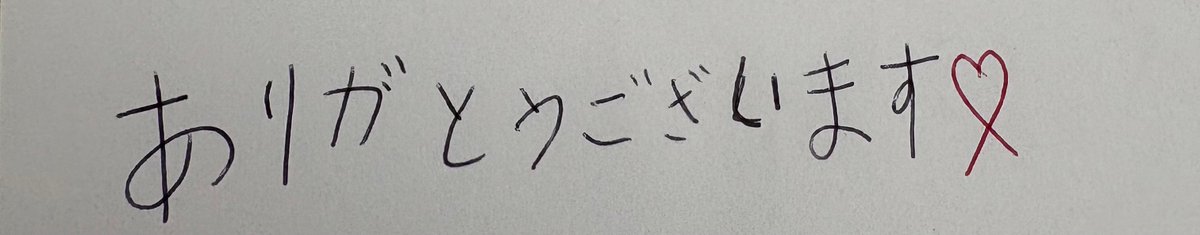 ありがとうございます♡